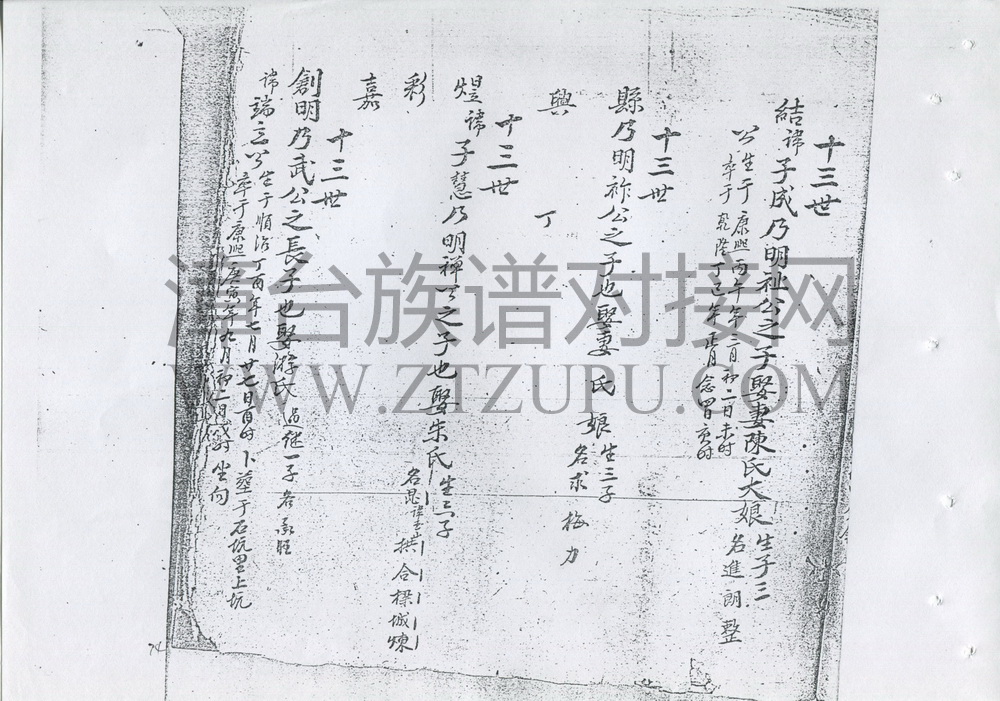 十三世
結諱子成乃明祉公之子娶妻陳氏大娘生子三
名進朗整
公生于康熙丙午年二月初二日未時
卒于乾隆丁巳年正月念四日寅時
十三世
縣乃明祚公之子也娶妻氏娘生三子
名求梅力
興丁
十三世
煜諱子慧乃明禪公之子也娶朱氏生三子
名思
拱合樑城煉
彩
嘉
十三世
創明乃武公之長子也娶游氏過继一子名承旺
諱端言公生于順治丁酉年七月廿七日酉時卜塟于石坑里上坑
卒于康熙庚寅年九月初二日戌時坐向
清台族谱对接网
WWW.ZTZUPU.COM